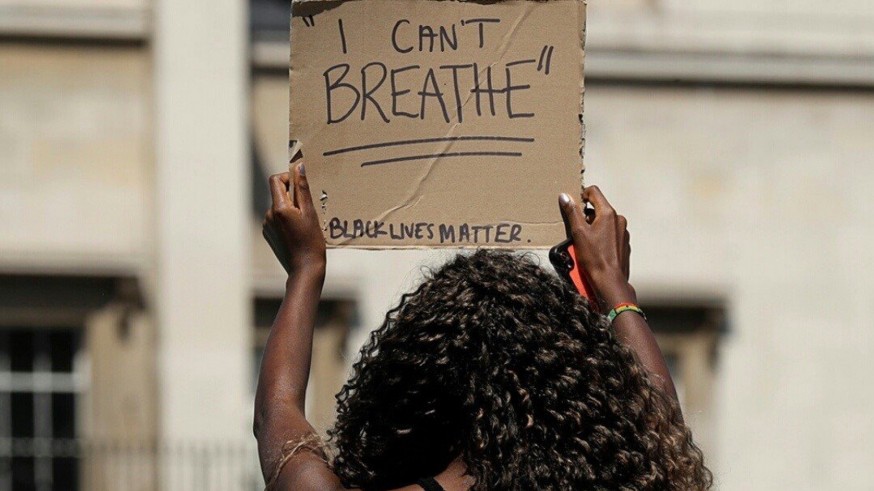 "I CAN'T
BREATHE"
BLACK LIVES MATTER.